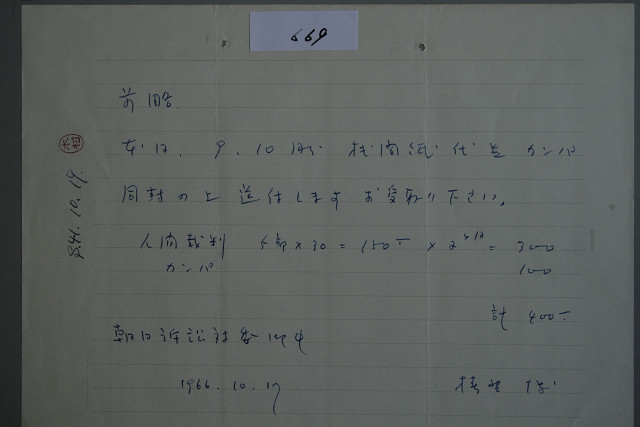 669
前略
本日、9、10月分 機関紙代並カンパ
同封の上送付します お受取り下さい。
人間裁判 5部×30=150-×2ヶ月= 300
カンパ 100
計 400-
朝日訴訟対委御中
1966.10.17
S41.10.19